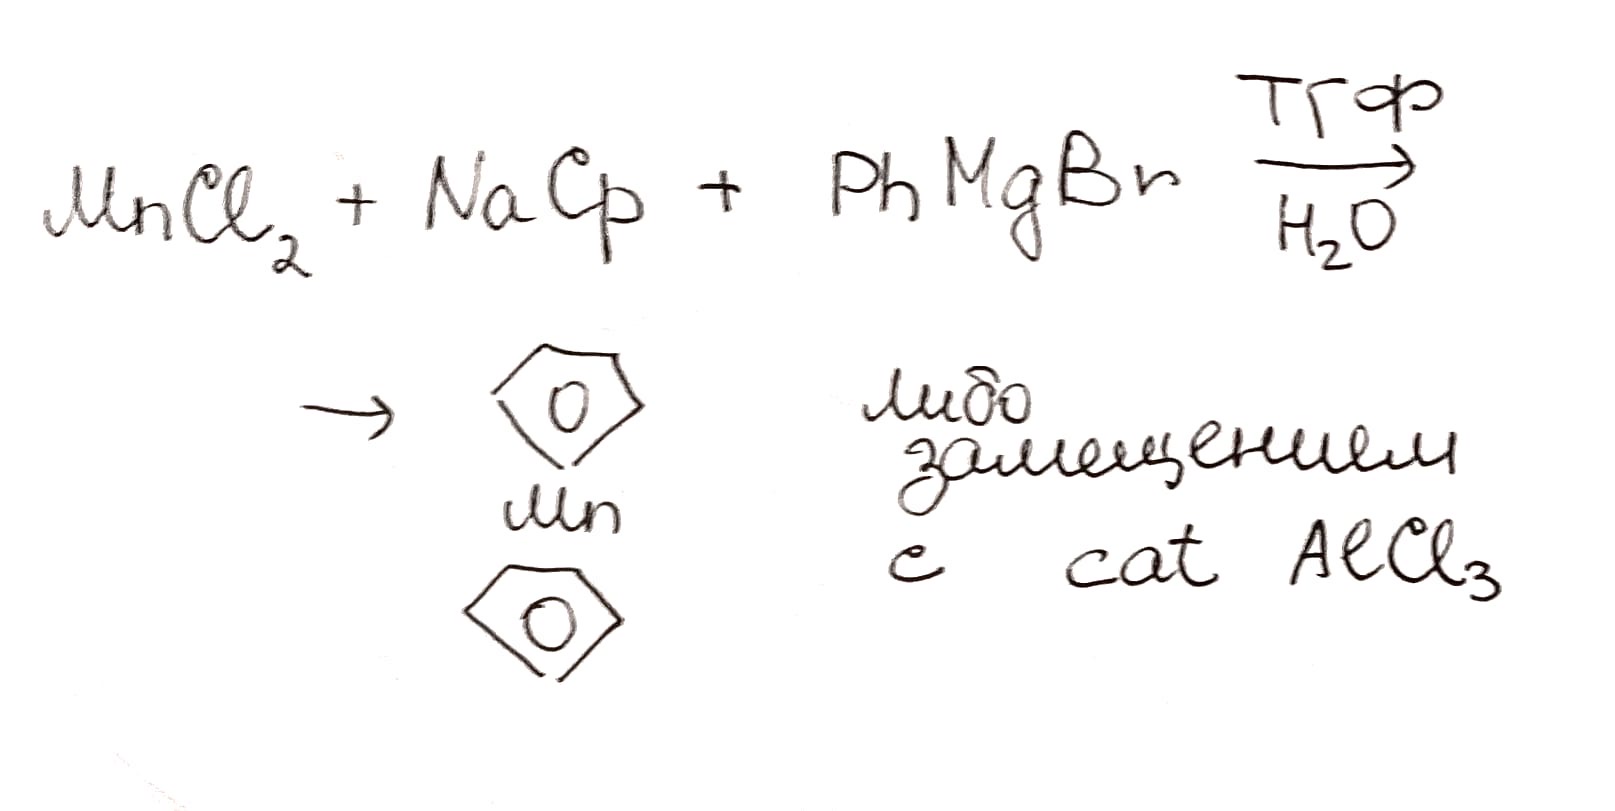 MnCl₂ + NaCp + PhMgBr ТГФ → H₂O
→ Mn
либо
замещением
с cat AlCl₃